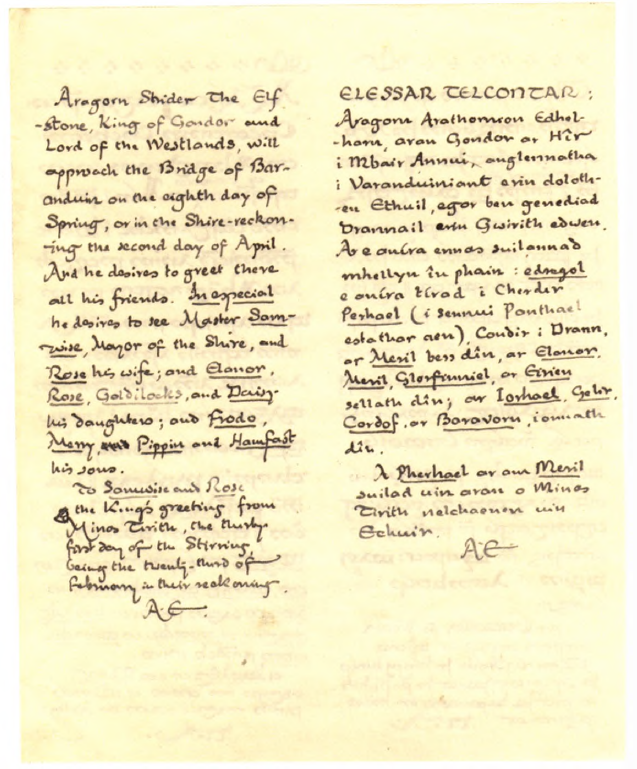 Aragorn Strider The Elf
-stone, King of Gondor and
Lord of the Westlands, will
approach the Bridge of Bar-
anduin on the eighth day of
Spring, or in the Shire-reckon-
-ing the second day of April.
And he desires to greet there
all his friends. In especial
he desires to see Master Sam-
wise, Mayor of the Shire, and
Rose his wife; and Elanor,
Rose, Goldilocks, and Daisy
his daughters; and Frodo,
Merry, Pippin and Hamfast
his sons.
To Samwise and Rose
the King's greeting from
Minas Tirith, the thirty-
first day of the Stirring,
being the twenty-third of
February in their reckoning.
A·E·
ELESSAR TELCONTAR:
Aragorn Arathornion Edhel-
-harn, aran Gondor ar Hîr
i Mbair Annui, anglennatha
i Varanduiniant erin doloth-
-en Ethuil, egor ben genediad
Drannail erin Gwirith edwen.
Ar e aníra ennas suilannad
mhellyn în phain: edregol
e aníra tírad i Cherdir
Perhael (i sennui Panthael
estathar aen), Condir i Drann,
ar Meril bess dîn, ar Elanor,
Meril, Glorfinniel, ar Eirien
sellath dîn; ar Iorhael, Gelir,
Cordof, ar Baravorn, ionnath
dîn.
A Pherhael ar am Meril
suilad uin aran o Minas
Tirith nelchaenen uin
Echuir.
A·E·